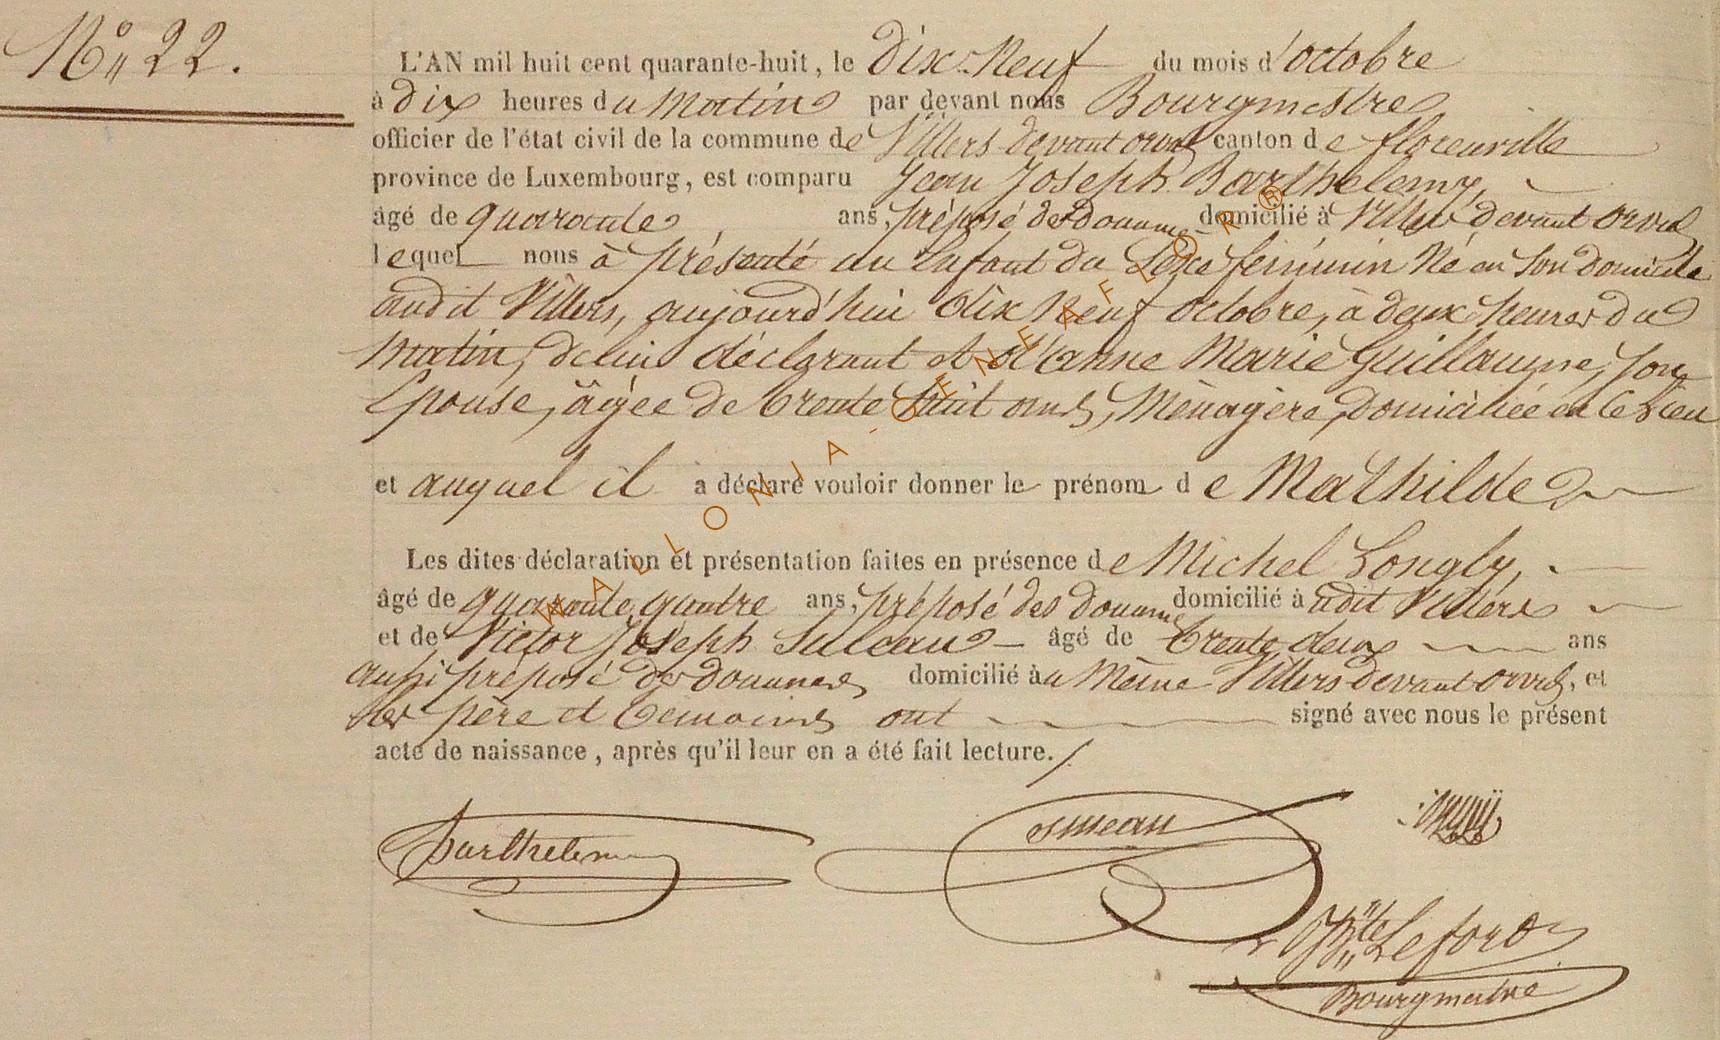 N° 22.
L'AN mil huit cent quarante-huit, le dix-Neuf du mois d'octobre
à dix heures du Matin par devant nous Bourgmestre
officier de l'état civil de la commune de Villers devant orval canton de florenville
province de Luxembourg, est comparu Jean Joseph Barthelemy,
âgé de quarante ans, préposé des douanes domicilié à Villers devant orval
lequel nous à présenté un Enfant du Sexe féminin Né en Son domicile
audit Villers, aujourd'hui dix Neuf octobre, à deux heures du
Matin, de lui déclarant et d'anne Marie Guillaume, Son
Epouse, âgée de trente huit ans, Ménagère, domiciliée en ce lieu
et auquel il a déclaré vouloir donner le prénom de Mathilde
Les dites déclaration et présentation faites en présence de Michel Longly,
âgé de quarante quatre ans, préposé des douane domicilié à udit Villers
et de Victor Joseph âgé de trente deux ans
aussi préposé des douanes domicilié au Même Villers devant orval, et
les père et témoins ont signé avec nous le présent
acte de naissance, après qu'il leur en a été fait lecture./
Barthelemy
Bte Leford
Bourgmestre
WALLONIA-GENEAFLOR®